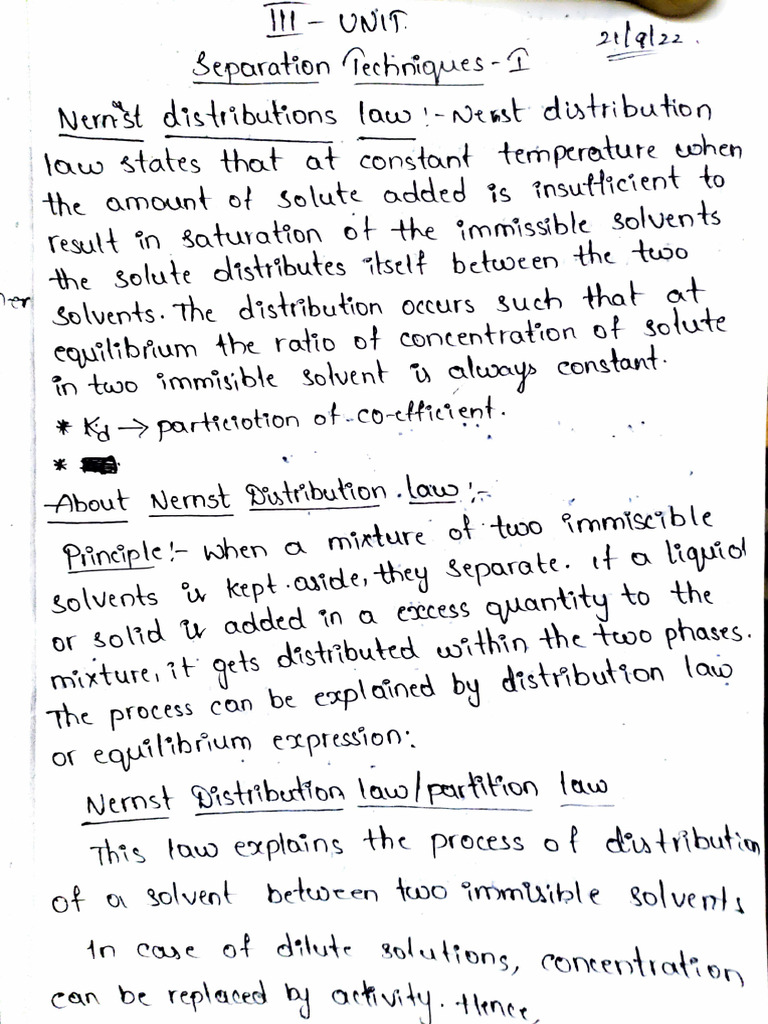 III - UNIT.
21/9/22.
Separation Techniques - I
Nernst distributions law :- Nernst distribution
law states that at constant temperature when
the amount of solute added is insufficient to
result in saturation of the immissible solvents
the solute distributes itself between the two
solvents. The distribution occurs such that at
equilibrium the ratio of concentration of solute
in two immisible solvent is always constant.
* Kd → particiotion of co-efficient.
*
About Nernst Distribution law :-
Principle :- when a mixture of two immiscible
solvents is kept aside, they separate. If a liquid
or solid is added in a excess quantity to the
mixture, it gets distributed within the two phases.
The process can be explained by distribution law
or equilibrium expression:
Nernst Distribution law/partition law
This law explains the process of distribution
of a solvent between two immisible solvents
In case of dilute solutions, concentration
can be replaced by activity. Hence,